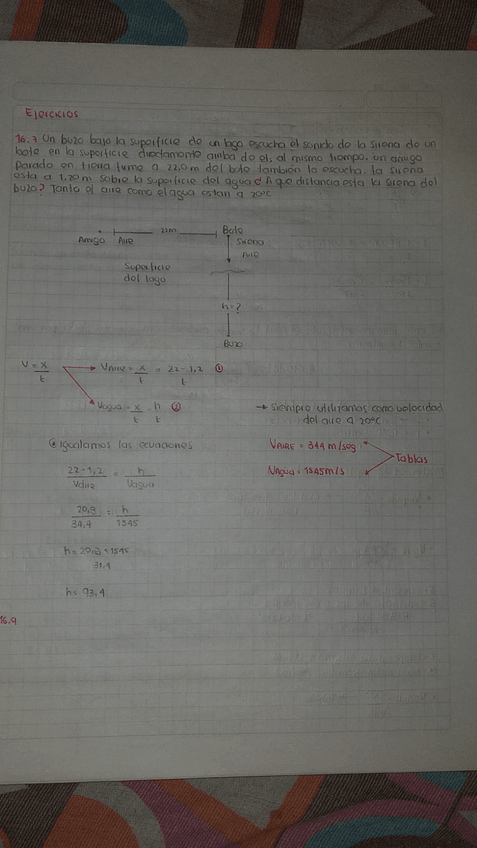 Ejercicios
16.7 Un buzo bajo la superficie de un lago escucha el sonido de la sirena de un
bote en la superficie directamente arriba de el, al mismo tiempo, un amigo
parado en tierra firme a 22,0 m del bote tambien la escucha, la sirena
esta a 1,20 m sobre la superficie del agua ¿ A que distancia esta la sirena del
buzo? Tanto el aire como el agua estan a 20°C
22m
Bote
Amigo Aire
Sirena
Aire
Superficie
del lago
h=?
Buzo
V = x/t
VAIRE = x/t = 22-1,2/t ①
Vagua = x/t h/t ②
→ Siempre utilizamos como velocidad
del aire a 20°C
igualamos las ecuaciones
VAIRE = 344 m/seg
Tablas
VAGUA = 1545m/s
22-1,2/Vaire = h/Vagua
20,8/34,4 = h/1545
h= 20,8 × 1545
h= 93,4
16.9